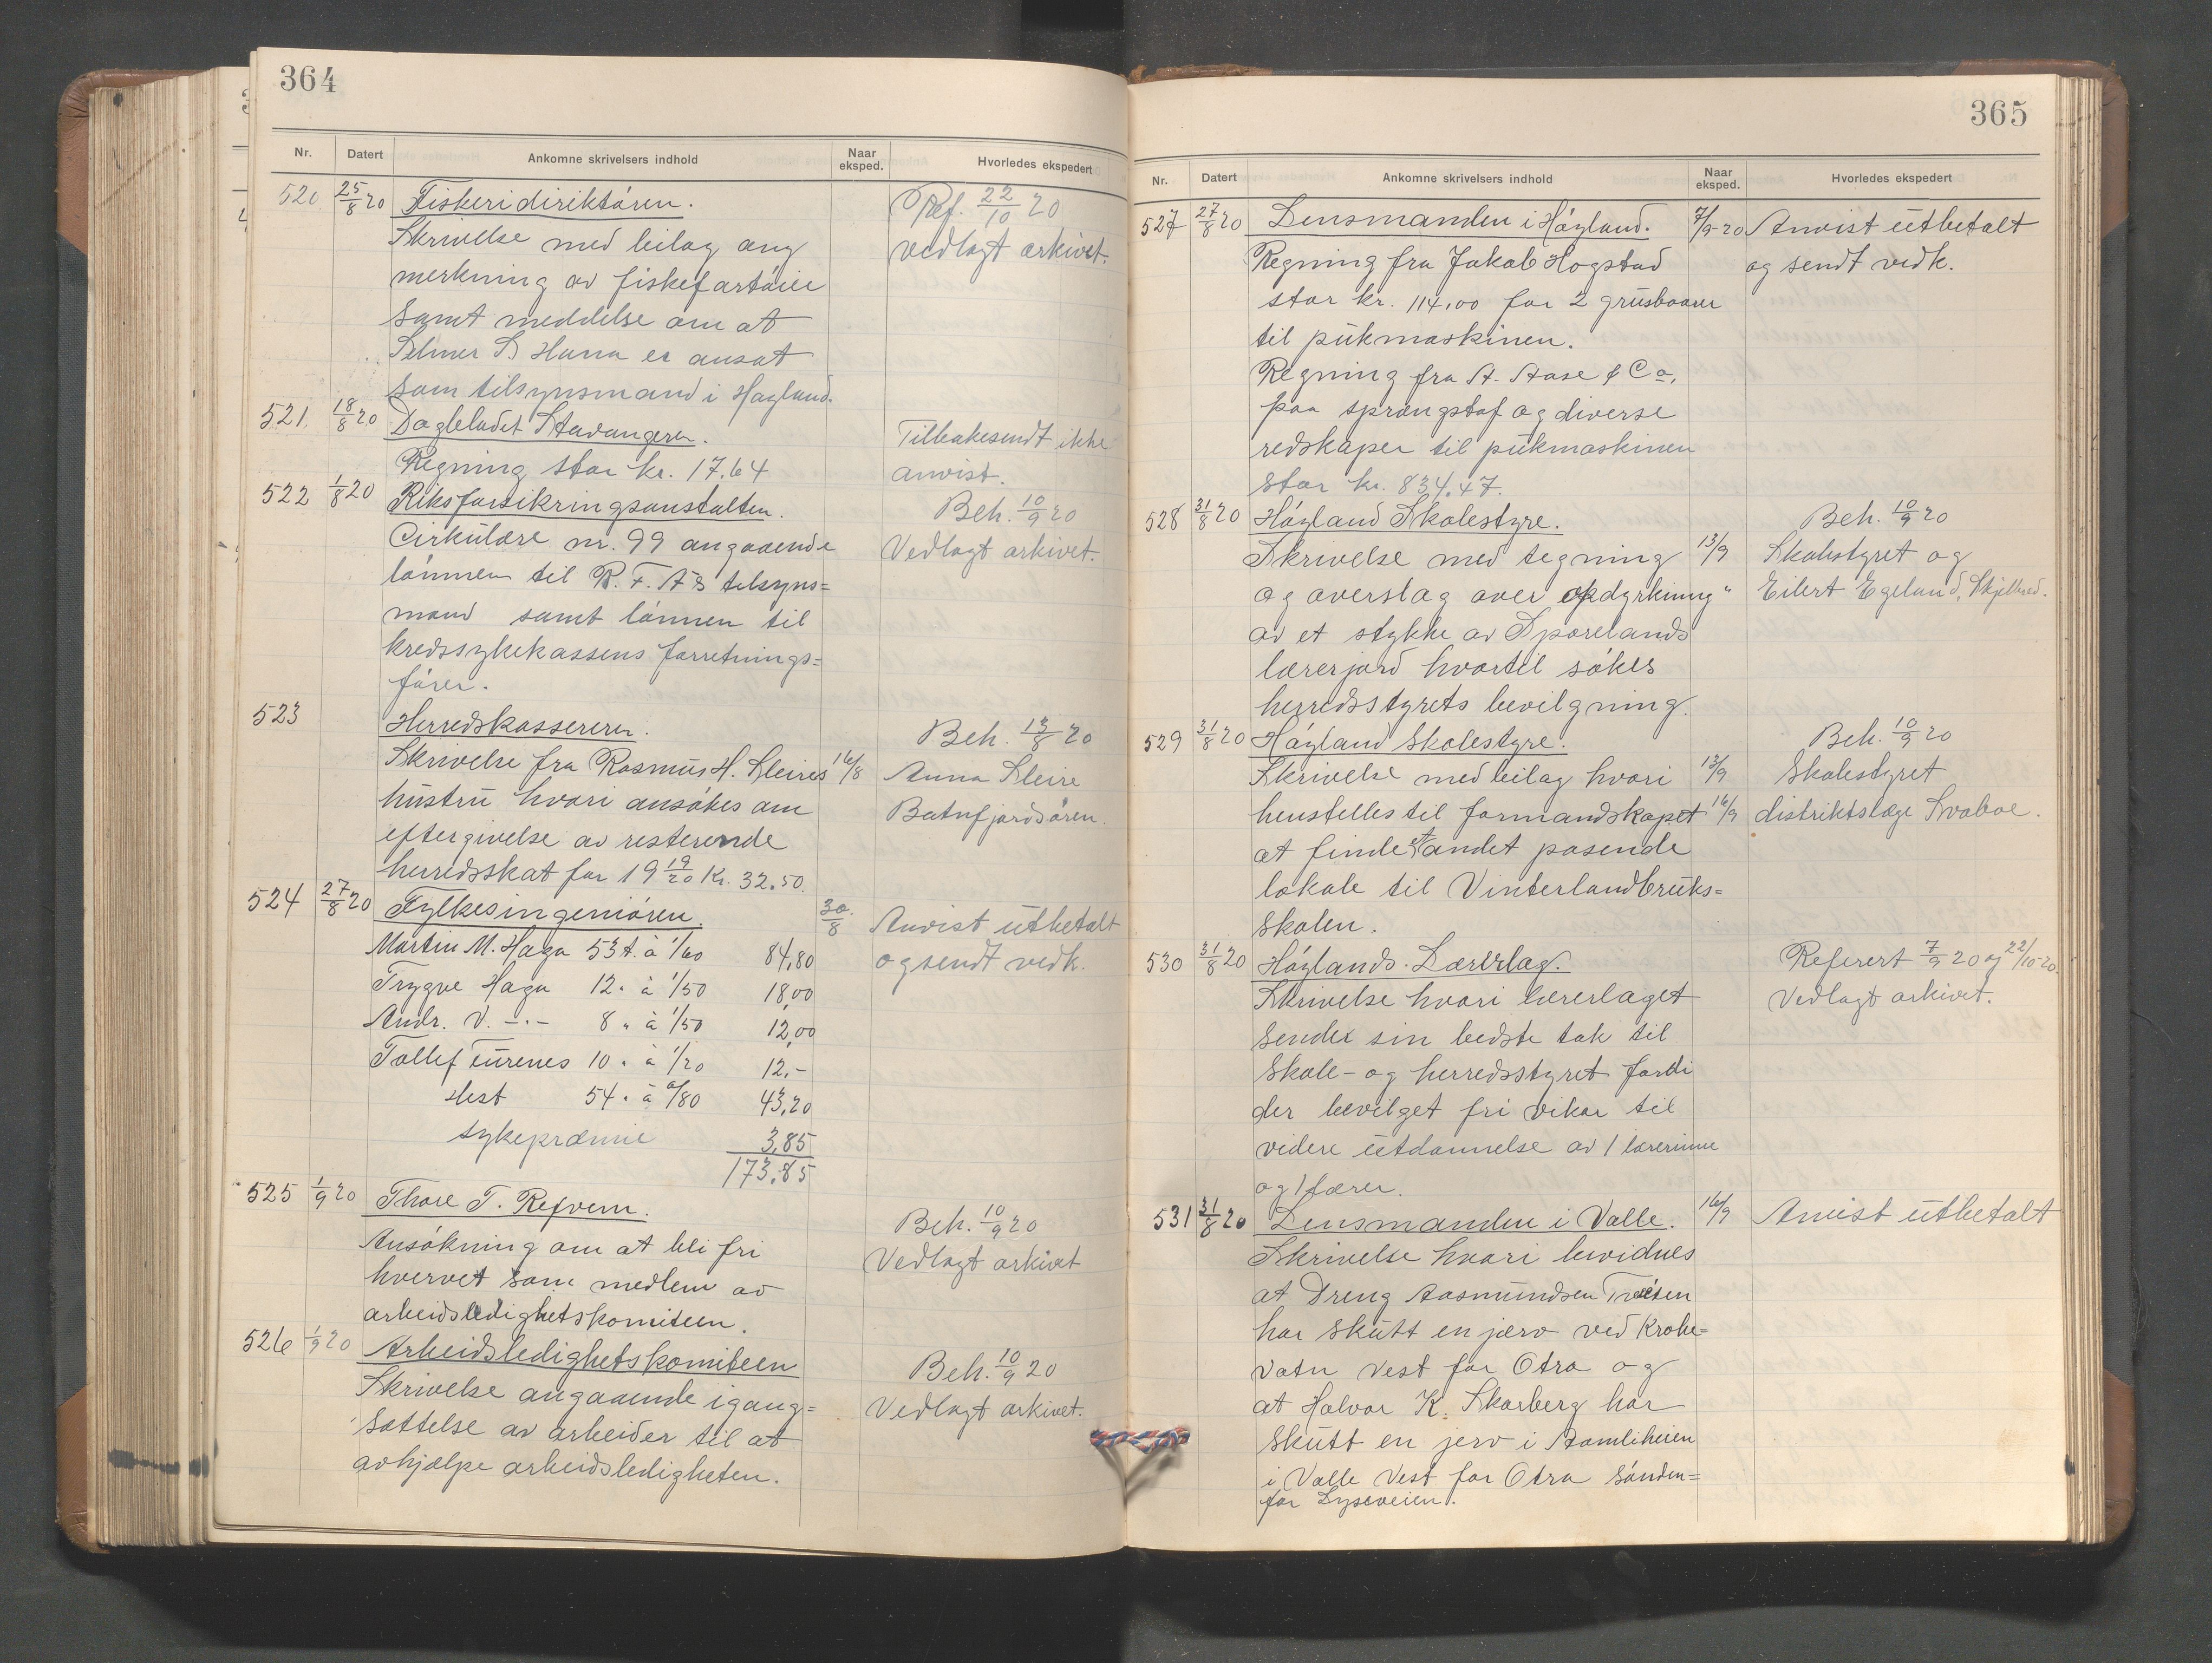 364
Nr. Datert Ankomne skrivelsers indhold Naar eksped. Hvorledes ekspedert
520 25/8 20 Fiskeridiriktóren. Ref. 22/10 20
Skrivelse med beilag ang vedlagt arkivet.
merkning av fiskefartóier
samt meddelse om at
Selmer S. Hana er ansat
som tilsynsmand i Høyland.
521. 18/8 20 Dagbladet Stavangeren. Tilbakesendt ikke
Regning stor kr. 17.64 anvist.
522 1/8 20 Riksforsikringsanstalten. Beh. 10/9 20
Cirkulære nr. 99 angaaende Vedlagt arkivet.
lónnen til R.F.A's tilsyns=
mand samt lónnen til
kredssykekassens forretnings=
fórer.
523 Herredskassereren. Beh. 13/8 20
Skrivelse fra Rasmus H. Kleires 16/8 Anna Kleire
hustru hvori ansókes om Batnfjordsóren.
eftergivelse av resterende
herredsskat for 19 19/20 Kr. 32.50.
524 27/8 20 Fylkesingenióren. 30/8 Anvist utbetalt
Martin M. Haga 53 t. à 1/60 84,80 og sendt vedk.
Trygve Haga 12 " à 1/50 18,00
Andr. V. -"- 8 " à 1/50 12,00
Tollef Eurenes 10 " à 1/20 12,-
Hest 54 " à 0/80 43,20
sykepræmie 3,85
173.85
525 1/9 20 Thore T. Refvem. Beh. 10/9 20
Ansókning om at bli fri Vedlagt arkivet
hvervet som medlem av
arbeidsledighetskomiteen.
526 1/9 20 Arbeidsledighetskomiteen Beh. 10/9 20
Skrivelse angaaende igang= Vedlagt arkivet.
sættelse av arbeider til at
avhjælpe arbeidsledigheten.
365
Nr. Datert Ankomne skrivelsers indhold Naar eksped. Hvorledes ekspedert
527 27/8 20 Lensmanden i Hóyland. 7/9-20 Anvist utbetalt
Regning fra Jakob Hogstad og sendt vedk.
stor kr. 114,00 for 2 grusbaarer
til pukmaskinen.
Regning fra A. Aase & Co,
paa sprængstof og diverse
redskaper til pukmaskinen
stor kr. 834.47.
528 31/8 20 Hóyland Skolestyre. Beh. 10/9 20
Skrivelse med tegning 13/9 Skolestyret og
og overslag over opdyrkning " Eilert Egeland, Skjelbred.
av et stykke av Sporelands
lærerjord hvortil sókes
herredsstyrets bevilgning.
529 31/8 20 Hóyland Skolestyre. Beh. 10/9 20
Skrivelse med beilag hvori 13/9 Skolestyret
henstilles til formandskapet 16/9 distriktslæge Svaboe.
at finde et andet pasende
lokale til Vinterlandbruks=
skolen.
530 31/8 20 Hóylands Lærerlag. Referert 7/9 20 og 22/10-20.
Skrivelse hvori lærerlaget Vedlagt arkivet.
sender sin bedste tak til
Skole- og herredsstyret fordi
der bevilget fri vikar til
videre utdannelse av 1 lærerinne
og 1 lærer.
531 31/8 20 Lensmanden i Valle. 16/9 Anvist utbetalt
Skrivelse hvori bevidnes
at Dreng Aasmundsen
har skutt en jærv ved Kroke=
vatn Vest for Otra og
at Halvor K. Skarberg har
skutt en jerv i Aamliheien
i Valle Vest for Otra sónden=
for Lyseveien.